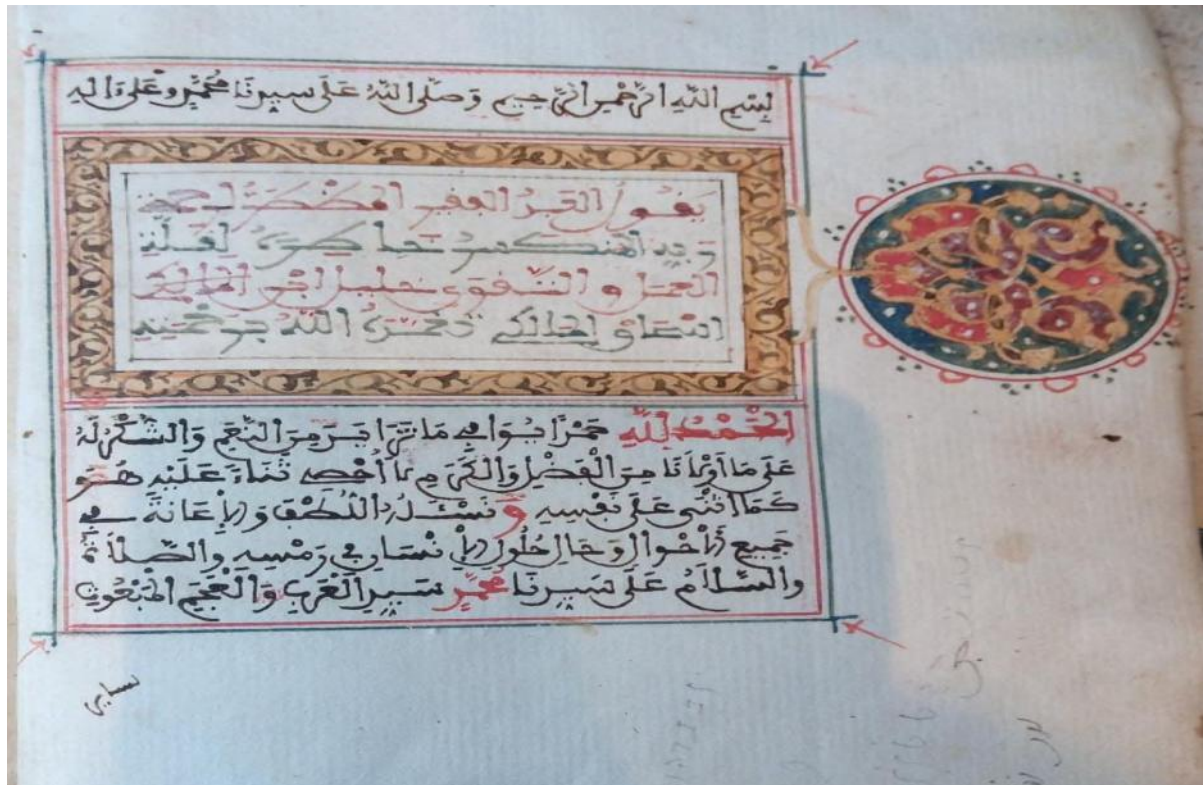 بِسْمِ اللَّهِ الرَّحْمَنِ الرَّحِيمِ وَصَلَّى اللَّهُ عَلَى سَيِّدِنَا مُحَمَّدٍ وَعَلَى ءَالِهِ
يَقُولُ الْعَبْدُ الْفَقِيرُ الْمُضْطَرُّ لِرَحْمَةِ
رَبِّهِ الْمُنْكَسِرُ خَاطِرُهُ لِقِلَّةِ
الْعَمَلِ وَالتَّقْوَى خَلِيلُ ابْنُ
الْمَالِكِي تَغَمَّدَهُ اللَّهُ بِرَحْمَتِهِ
الْحَمْدُ لِلَّهِ حَمْدًا يُوَافِي مَا تَزَايَدَ مِنَ النِّعَمِ وَالشُّكْرُ لَهُ
عَلَى مَا أَوْلَانَا مِنَ الْفَضْلِ وَالْكَرَمِ لَا أُحْصِي ثَنَاءً عَلَيْهِ هُوَ
كَمَا أَثْنَى عَلَى نَفْسِهِ وَنَسْئَلُهُ اللُّطْفَ وَالْإِعَانَةَ فِي
جَمِيعِ الْأَحْوَالِ وَحَالِ حُلُولِ الْإِنْسَانِ فِي رَمْسِهِ وَالصَّلَاةُ
وَالسَّلَامُ عَلَى سَيِّدِنَا مُحَمَّدٍ سَيِّدِ الْعَرَبِ وَالْعَجَمِ الْمَبْعُوثِ